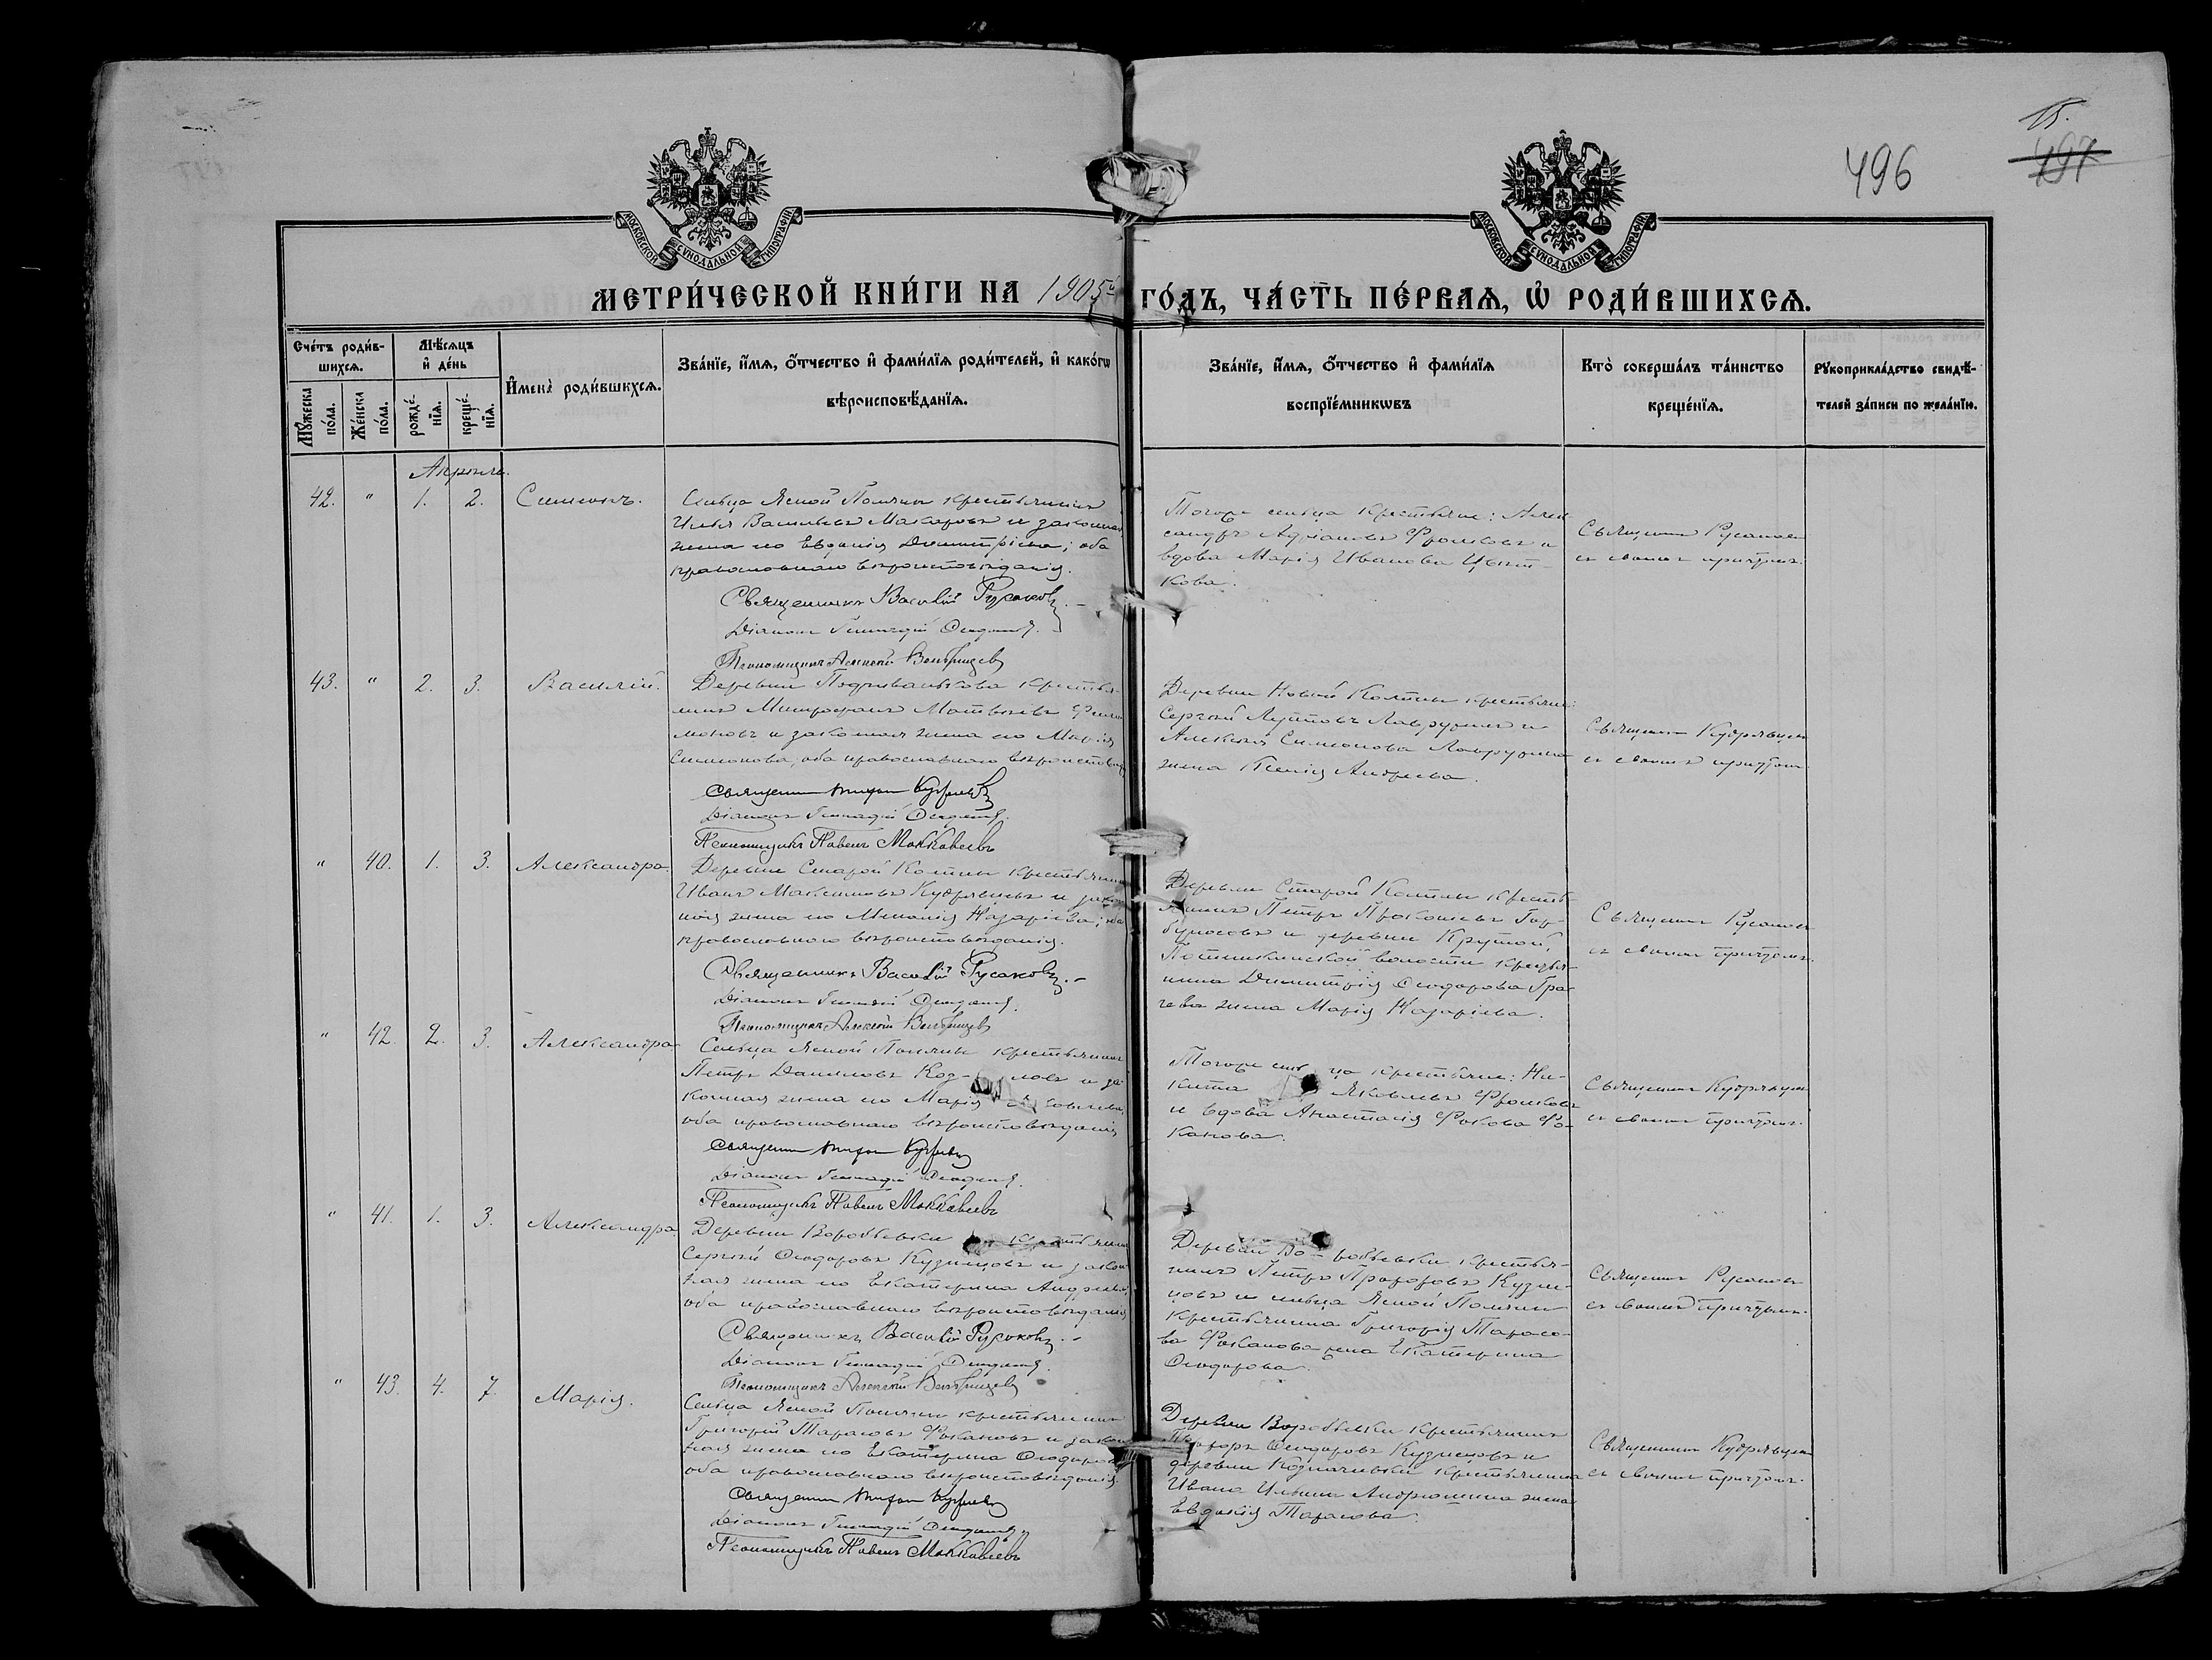 15.
496
497
МОСКОВСКОЙ СѴНОДАЛЬНОЙ ТИПОГРАФІИ
МОСКОВСКОЙ СѴНОДАЛЬНОЙ ТИПОГРАФІИ
МЕТРИ́ЧЕСКОЙ КНИ́ГИ НА 1905й ГО́ДЪ, ЧА́СТЬ ПЕ́РВАЯ, Ѡ҆ РОДИ́ВШИХСЯ.
Сче́тъ роди́в-
шихся.
Мѣ́сяцъ
и҆ де́нь
Мꙋ́жеска по́ла.
Же́нска по́ла.
рожде́-
нїя.
креще́-
нїя.
И҆мена̀ роди́вшихся.
Зва́нїе, и҆́мя, ѻ҆́тчество и҆ фами́лїя роди́телей, и҆ како́гѡ
вѣроисповѣ́данїя.
Зва́нїе, и҆́мя, ѻ҆́тчество и҆ фами́лїя
воспрїе́мникѡвъ
Кто̀ соверша́лъ та́инство
креще́нїя.
Рꙋкоприкла́дство свидѣ́-
телей за́писи по жела́нїю.
Апрѣль.
42. " 1. 2. Симеонъ.
Сельца Ясной Поляны крестьянинъ
Илья Васильевъ Макаровъ и законная
жена его Евдокія Димитріева; оба
православнаго вѣроисповѣданія.
Священникъ Василій Русаковъ.
Діаконъ Геннадій
Псаломщикъ Алексѣй
Того же сельца крестьяне: Алек
сандръ Адріановъ Фроловъ и
вдова Марія Иванова Цвѣт-
кова.
Священникъ Русаковъ
съ своимъ причтомъ.
43. " 2. 3. Василій.
Деревни крестья-
нинъ Митрофанъ Матвѣевъ Фили
моновъ и законная жена его Марія
Симеонова, оба православнаго вѣроисповѣд
Священникъ Кудрявцевъ
Діаконъ Геннадій
Псаломщикъ Павелъ Маккавеевъ
Деревни Новой Колпны крестьяне:
Сергѣй Лаврухинъ и
Алексѣя Симеонова Лаврухина
жена Ксенія Андреева.
Священникъ Кудрявцевъ
съ своимъ причтомъ
" 40. 1. 3. Александра.
Деревни Старой Колпны крестьянинъ
Иванъ Максимовъ Кудрявцевъ и закон
ная жена его Меланія Назаріева; оба
православнаго вѣроисповѣданія.
Священникъ Василій Русаковъ.
Діаконъ Геннадій
Псаломщикъ Алексѣй
Деревни Старой Колпны кресть-
янинъ Петръ Прокопіевъ Гор-
буновъ и деревни Крутой,
волости крестья-
нина Димитрія Ѳеодорова Гра-
чева жена Марія Назаріева.
Священникъ Русаковъ
съ своимъ причтомъ.
" 42. 2. 3. Александра
Сельца Ясной Поляны крестьянинъ
Петръ Даниловъ Коз- ловъ и за-
конная жена его Марія
оба православнаго вѣроисповѣданія
Священникъ Кудрявцевъ
Діаконъ Геннадій
Псаломщикъ Павелъ Маккавеевъ
Того же сель ца крестьяне: Ни-
кита Яковлевъ Фроловъ
и вдова Анастасія Фокова Фо-
канова.
Священникъ Кудрявцевъ
съ своимъ причтомъ.
" 41. 1. 3. Александра.
Деревни Воробьевки крестьянинъ
Сергѣй Ѳеодоровъ Кузнецовъ и закон
ная жена его Екатерина Андреева,
оба православнаго вѣроисповѣданія
Священникъ Василій Русаковъ.
Діаконъ Геннадій
Псаломщикъ Алексѣй
Деревни Во- робьевки крестья-
нинъ Петръ Прохоровъ Кузне-
цовъ и сельца Ясной Поляны
крестьянина Григорія Тарасо-
ва Фоканова жена Екатерина
Ѳеодорова.
Священникъ Русаковъ
съ своимъ причтомъ.
" 43. 4. 7. Марія.
Сельца Ясной Поляны крестьянинъ
Григорій Тарасовъ Фокановъ и закон
ная жена его Екатерина Ѳеодорова
оба православнаго вѣроисповѣданія.
Священникъ Кудрявцевъ
Діаконъ Геннадій
Псаломщикъ Павелъ Маккавеевъ
Деревни Воробьевки крестьянинъ
Прохоръ Ѳеодоровъ Кузнецовъ и
деревни крестьянина
Ивана Ильина Андрюшина жена
Евдокія Тарасова.
Священникъ Кудрявцевъ
съ своимъ причтомъ.